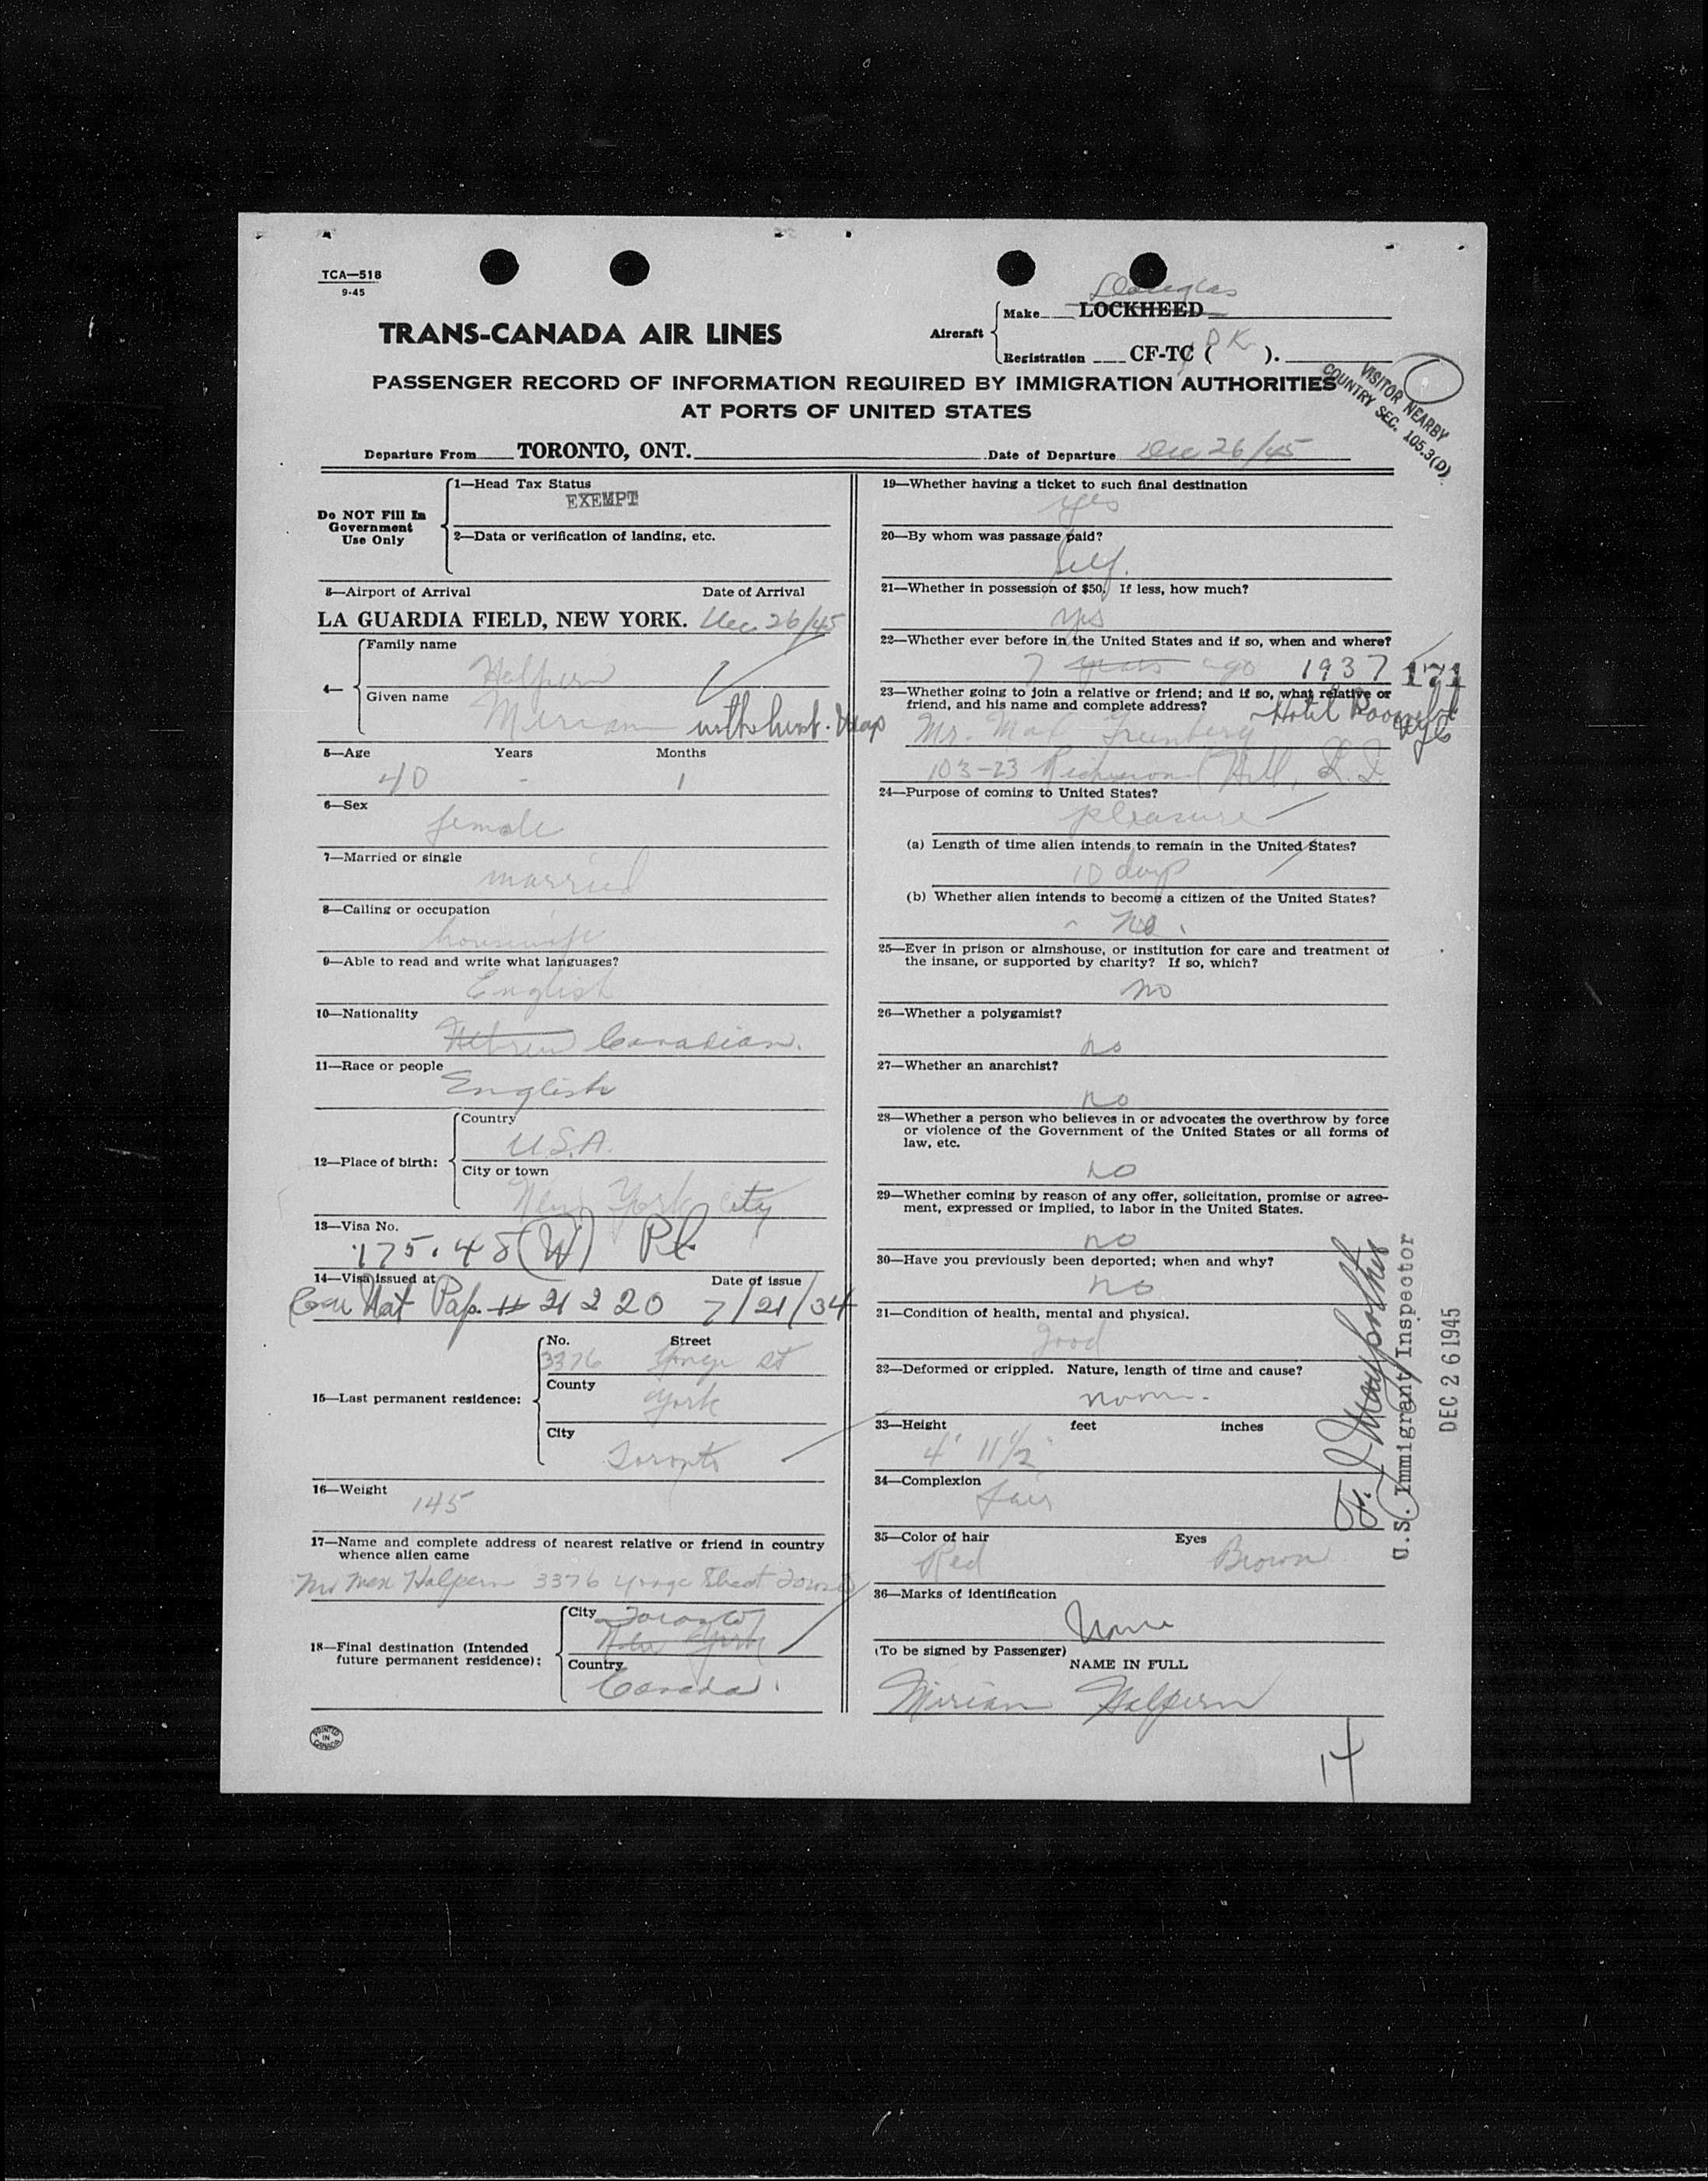 TCA—518
9-45
TRANS-CANADA AIR LINES
Aircraft
Douglas
Make LOCKHEED
Registration CF-TC ( DK ).
PASSENGER RECORD OF INFORMATION REQUIRED BY IMMIGRATION AUTHORITIES
AT PORTS OF UNITED STATES
VISITOR NEARBY
COUNTRY SEC. 105.3(D)
Departure From TORONTO, ONT. Date of Departure Dec 26/45
Do NOT Fill In
Government
Use Only
1—Head Tax Status
EXEMPT
2—Data or verification of landing, etc.
3—Airport of Arrival Date of Arrival
LA GUARDIA FIELD, NEW YORK. Dec 26/45
4—
Family name
Halpern
Given name
Miriam with husb.
5—Age Years Months
40 - 1
6—Sex
female
7—Married or single
married
8—Calling or occupation
housewife
9—Able to read and write what languages?
English
10—Nationality
Hebrew Canadian.
11—Race or people
English
12—Place of birth:
Country
U.S.A.
City or town
New York city
13—Visa No.
175.45(W)
14—Visa issued at Date of issue
Can Nat Pap. # 21220 7/21/34
15—Last permanent residence:
No. Street
3376 Yonge St
County
York
City
Toronto
16—Weight
145
17—Name and complete address of nearest relative or friend in country
whence alien came
Mr Max Halpern 3376 Yonge Street Toronto
18—Final destination (Intended
future permanent residence):
City Toronto
New York
Country
Canada.
PRINTED
IN
CANADA
19—Whether having a ticket to such final destination
yes
20—By whom was passage paid?
Self.
21—Whether in possession of $50. If less, how much?
yes
22—Whether ever before in the United States and if so, when and where?
7 years ago 1937 171
23—Whether going to join a relative or friend; and if so, what relative or
friend, and his name and complete address?
Hotel Roosevelt
NYC
Mr. Max Greenberg
103-23 Richmond Hill, L.I.
24—Purpose of coming to United States?
pleasure
(a) Length of time alien intends to remain in the United States?
10 days
(b) Whether alien intends to become a citizen of the United States?
No.
25—Ever in prison or almshouse, or institution for care and treatment of
the insane, or supported by charity? If so, which?
no
26—Whether a polygamist?
no
27—Whether an anarchist?
no
28—Whether a person who believes in or advocates the overthrow by force
or violence of the Government of the United States or all forms of
law, etc.
no
29—Whether coming by reason of any offer, solicitation, promise or agree-
ment, expressed or implied, to labor in the United States.
no
30—Have you previously been deported; when and why?
no
31—Condition of health, mental and physical.
good
32—Deformed or crippled. Nature, length of time and cause?
none.
33—Height feet inches
4' 11½"
34—Complexion
fair
35—Color of hair Eyes
Red Brown
36—Marks of identification
None
(To be signed by Passenger)
NAME IN FULL
Miriam Halpern
U.S. Immigrant Inspector
DEC 26 1945
14